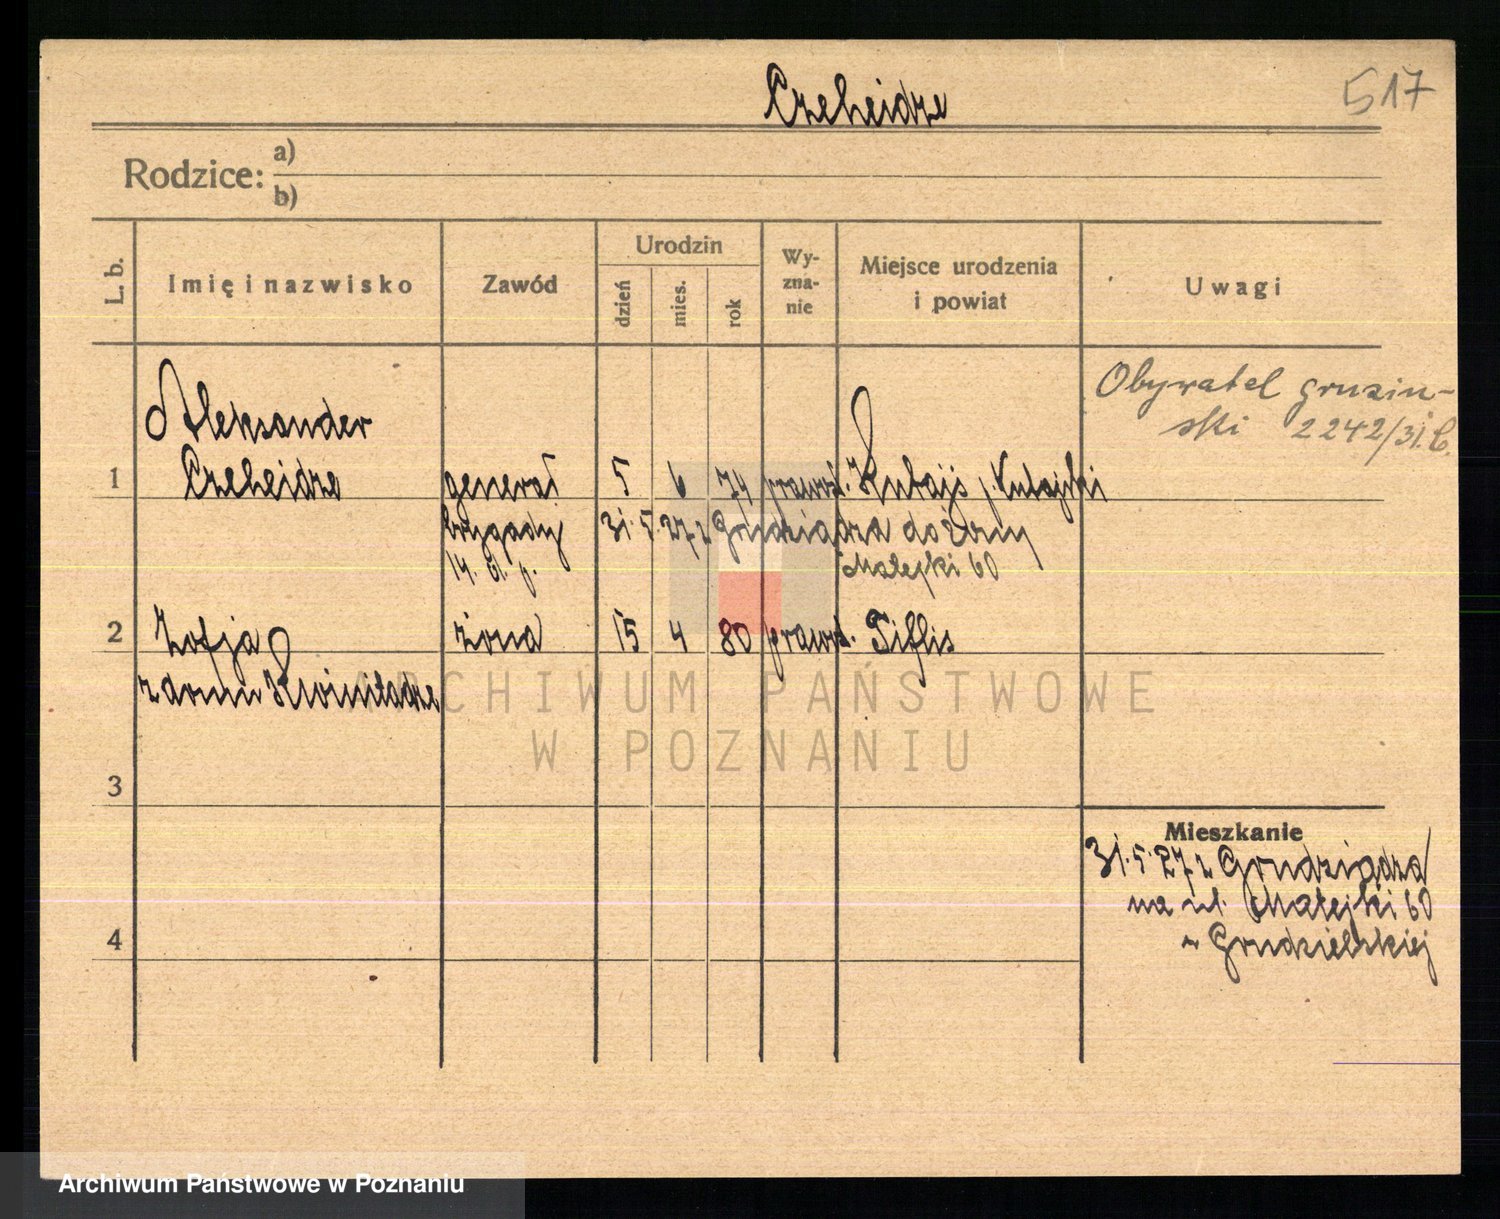 Czeheidze
517
Rodzice: a)
b)
L. b.
Imię i nazwisko
Zawód
Urodzin
dzień
mies.
rok
Wy-
zna-
nie
Miejsce urodzenia
i powiat
Uwagi
Obywatel gruziń-
ski 2242/31.
Aleksander
1 Czeheidze generał 5 6 74 prawosł. Kutajs, Kutajski
brygady 31.5.27 z Grudziądza do
14. p. Matejki 60
2 Zofja żona 15 4 80 prawosł. Tiflis
z domu
3
4
Mieszkanie
31.5.27 z Grudziądza
na ul. Matejki 60
ARCHIWUM PAŃSTWOWE
W POZNANIU
Archiwum Państwowe w Poznaniu